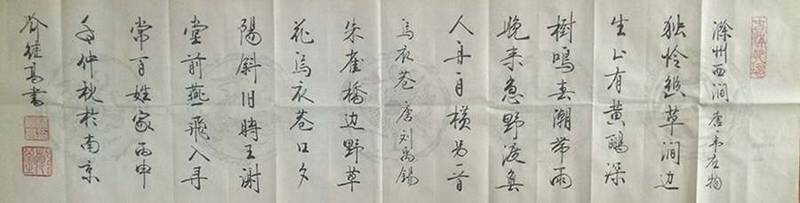 滁州西澗 唐·韦应物
独怜幽草澗边
生上有黄鸝深
樹鳴春潮带雨
晚来急野渡無
人舟自横另一首
烏衣巷 唐刘禹锡
朱雀橋边野草
花烏衣巷口夕
陽斜旧時王谢
堂前燕飛入寻
常百姓家丙申
年仲秋於南京
喻继高書